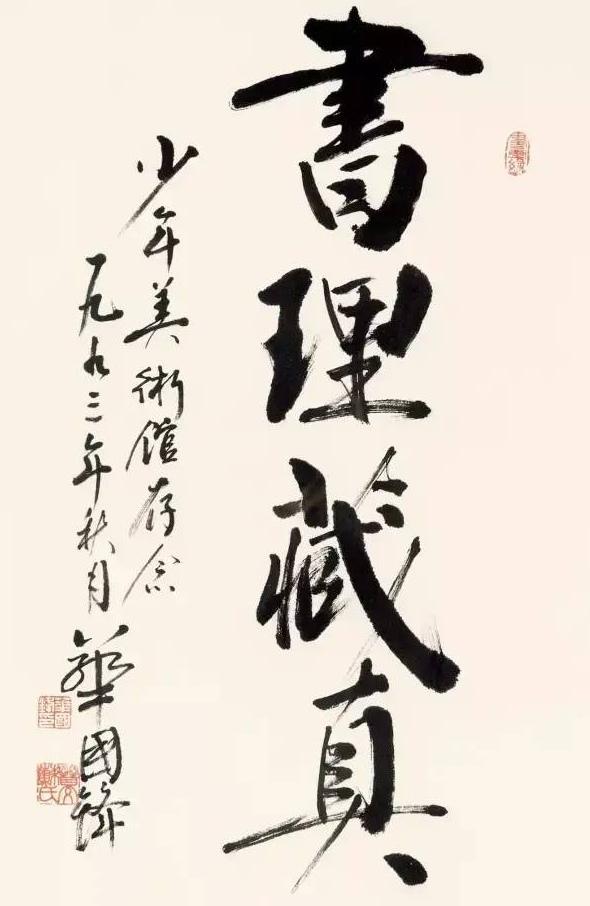 書理藏真
少年美術館存念
一九九二年秋月
華國鋒